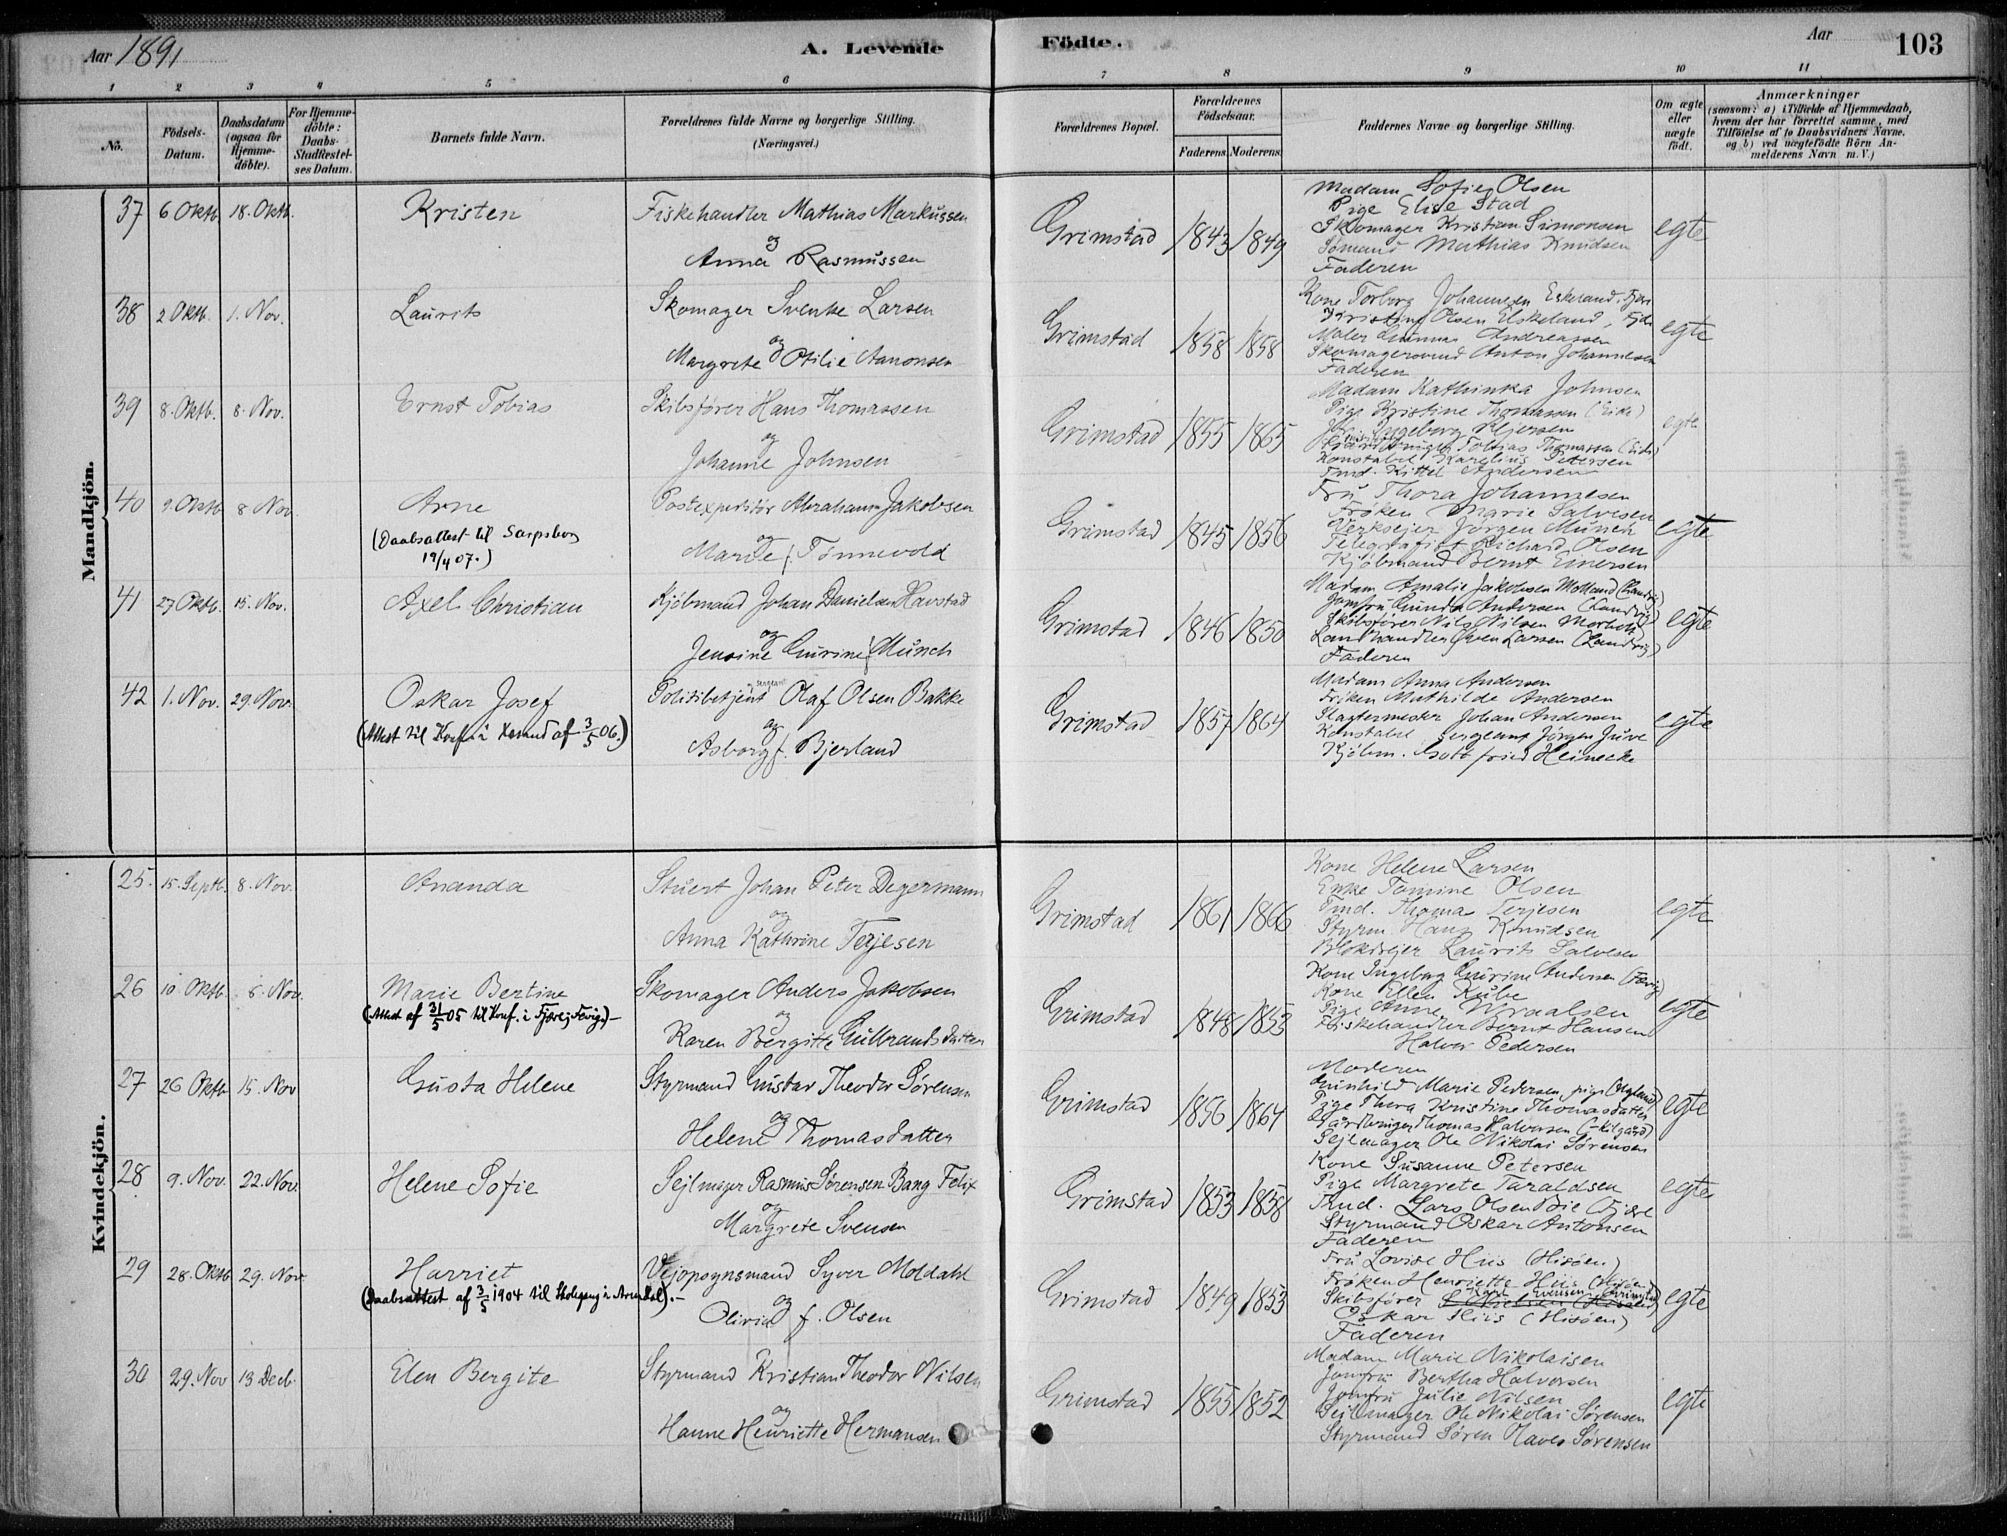 Aar 1891
A. Levende Födte.
Aar
103
1 2 3 4 5 6 7 8 9 10 11
No.
Födsels-Datum.
Daabsdatum (ogsaa for Hjemme-döbte).
For Hjemme-döbte: Daabs-Stadfæstel-ses Datum.
Barnets fulde Navn.
Forældrenes fulde Navne og borgerlige Stilling. (Næringsvei.)
Forældrenes Bopæl.
Forældrenes Födselsaar.
Faderens. Moderens.
Faddernes Navne og borgerlige Stilling.
Om ægte eller uægte födt.
Anmærkninger
(saasom: a) i Tilfælde af Hjemmedaab, hvem der har forrettet samme, med Tilföielse af to Daabsvidners Navne, og b) ved uægtefödte Börn An-melderens Navn m. V.)
Mandkjön.
37 6 Oktb. 18. Oktb. Kristen
Fiskehandler Mathias Markussen
og
Anna Rasmussen
Grimstad 1843 1849
Madam Sofie Olsen
Pige Elise Stad
Skomager Kristian Simonsen
Sömand Mathias Knudsen
Faderen
egte
38 2 Oktb. 1. Nov. Laurits
Skomager Svenke Larsen
og
Margrete Otilie Aanonsen
Grimstad 1858 1858
Kone Torborg Johannesen
Olsen Elskeland
Maler Gunnar Andreassen
Anton Johannesen
Faderen
egte
39 8. Oktb. 8. Nov. Ernst Tobias
Skibsförer Hans Thomassen
og
Johanne Johnsen
Grimstad 1855 1865
Madam Kathinka Johnsen
Pige Kristine Thomassen (Eide)
Ingeborg
Tobias Thomassen (Eide)
Konstabel Petersen
Tmd. Kittel Andersen
egte
40 9. Oktb 8 Nov. Arne
(Daabsattest til Sarpsborg
19/4 07.)
Postexpeditör Abraham Jakobsen
og
Marie f. Tönnevold
Grimstad 1845 1856
Fru Thora Johannesen
Fröken Marie Salvesen
Verksejer Jörgen Münch
Telegrafist Richard Olsen
Kjöbmand Bernt Einersen
egte
41 27 Oktb. 15. Nov. Axel Christian
Kjöbmand Johan Danielsen Havstad
og
Jensine Gurine f. Münch
Grimstad 1846 1850
Madam Amalie Jakobsen Molland (Landvig)
Jomfru Gunda Andersen (Landvig)
Skibsförer Nils Nilsen Morholt
Landhandler Sven Larsen (Landvig)
Faderen
egte
42 1. Nov. 29. Nov. Oskar Josef
(Attest til Konf. i af 3/5 06.)
Politibetjent og sergeant Olaf Olsen Bakke
og
Asborg f. Bjerland
Grimstad 1857 1864
Madam Anna Andersen
Fröken Mathilde Andersen
Slagtermester Johan Andersen
Konstabel Sergeant Jörgen Juve
Kjöbm. Gottfried Heinecke
egte
Kvindekjön.
25. 15. Septb. 8. Nov. Ananda
Stuert Johan Peter Degermann
og
Anna Kathrine Terjesen
Grimstad 1861 1866
Kone Helene Larsen
Enke Tomine Olsen
Tmd. Thomas Terjesen
Styrm. Hans Knudsen
Blokdrejer Laurits Salvesen
egte
26 10. Oktb. 8. Nov. Marie Bertine
(Attest af 31/5 05 til Konf. i Fjære, Fevig)–
Skomager Anders Jakobsen
og
Karen Bergitte Gulbrandsdatter
Grimstad 1848 1853
Kone Ingeborg Gurine Andersen (Fævig)
Kone Ellen Kube
Pige Anne Wraalsen
Fiskehandler Bernt Hansen
Halvor Pedersen
egte
27 26 Oktb 15. Nov Gusta Helene
Styrmand Gustav Theodor Sörensen
og
Helene Thomasdatter
Grimstad 1856 1864
Moderen
Gunhild Marie Pedersen, pige
Pige Thora Kristine Thomasdatter
Thomas Halvorsen
Sejlmager Ole Nikolai Sörensen
egte
28 9. Nov. 22. Nov. Helene Sofie
Sejlmager Rasmus Sörensen Bang Felix
og
Margrete Svensen
Grimstad 1853 1858
Kone Susanne Petersen
Pige Margrete Taraldsen
Tmd. Lars Olsen Bie (Fjære
Styrmand Oskar Antonsen
Faderen
egte
29 28. Oktb 29. Nov. Harriet
(Daabsattest af 3/5 1904 til Skolegang i Arendal).–
Vejopsynsmand Syver Moldahl
og
Olivia f. Olsen
Grimstad 1849 1853
Fru Lovise Hiis (Hisöen)
Fröken Henriette Hiis (Hisöen)
Skibsförer
Oskar Hiis (Hisöen)
Faderen
egte
30 29. Nov 13 Decb. Elen Bergite
Styrmand Kristian Theodor Nilsen
og
Hanne Henriette Hermansen
Grimstad 1855 1852
Madam Marie Nikolaisen
Jomfru Bertha Halvorsen
Jomfru Julie Nilsen
Sejlmager Ole Nikolai Sörensen
Styrmand Sören Olaves Sörensen
egte